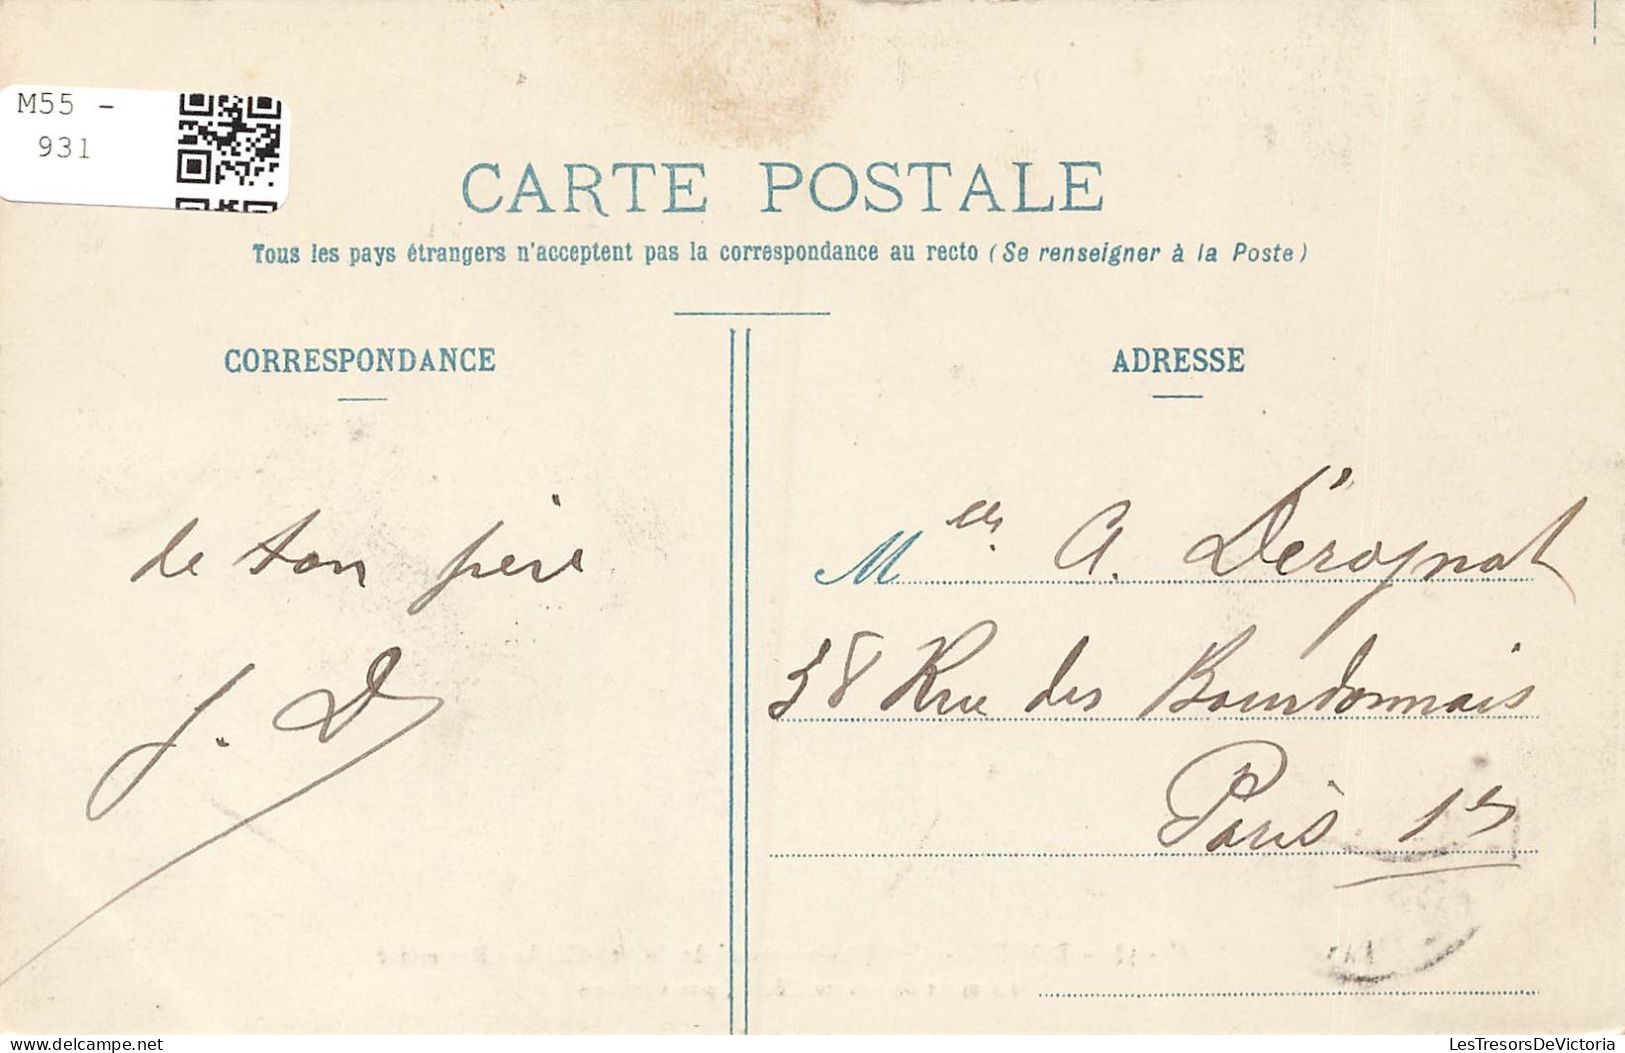 M55 -
931
CARTE POSTALE
Tous les pays étrangers n'acceptent pas la correspondance au recto (Se renseigner à la Poste)
CORRESPONDANCE
ADRESSE
de ton père
J. D
Melle A. Dérognat
38 Rue des Bourdonnais
Paris 1er
delcampe.net
LesTresorsDeVictoria